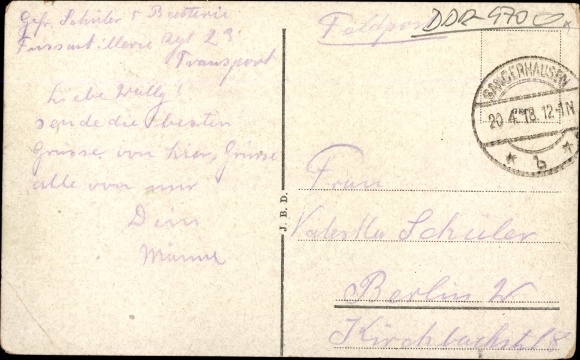 Gefr. Schüler 5 Batterie
Fussartillerie Rgt 23
Transport
Liebe Wally!
sende die besten
Grüsse von hier, Grüsse
alle von mir
Dein
Männe
J. B. D.
Feldpost
SANGERHAUSEN
20.4.18. 12-1N
* b *
Frau
Valeska Schüler
Berlin W
Kirchbachstr. 18